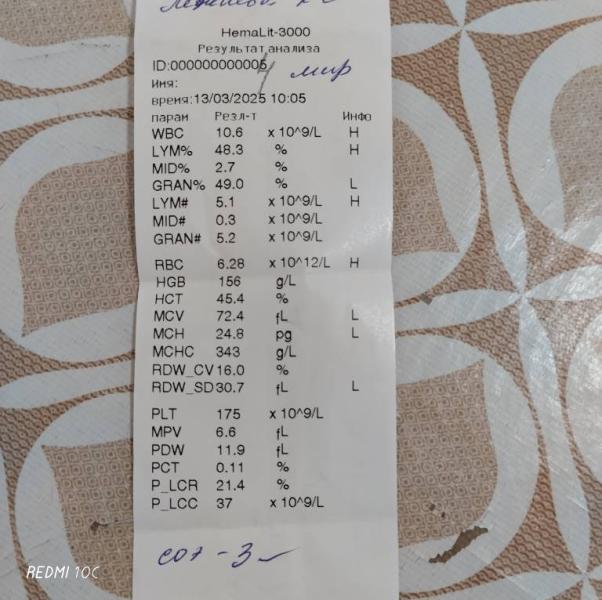 HemaLit-3000
Результат анализа
ID:000000000005
Имя:
время:13/03/2025 10:05
парам Резл-т Инфо
WBC 10.6 x 10^9/L H
LYM% 48.3 % H
MID% 2.7 %
GRAN% 49.0 % L
LYM# 5.1 x 10^9/L H
MID# 0.3 x 10^9/L
GRAN# 5.2 x 10^9/L
RBC 6.28 x 10^12/L H
HGB 156 g/L
HCT 45.4 %
MCV 72.4 fL L
MCH 24.8 pg L
MCHC 343 g/L
RDW_CV 16.0 %
RDW_SD 30.7 fL L
PLT 175 x 10^9/L
MPV 6.6 fL
PDW 11.9 fL
PCT 0.11 %
P_LCR 21.4 %
P_LCC 37 x 10^9/L
соэ - 3
REDMI 10C